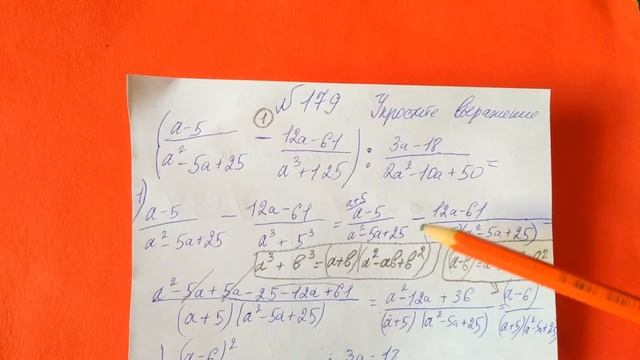 № 179 Упростите выражение
( (a-5)/(a²-5a+25) - (12a-61)/(a³+125) ) : (3a-18)/(2a²-10a+50) =
①
1) (a-5)/(a²-5a+25) - (12a-61)/(a³+5³) = a+5 (a-5)/(a²-5a+25) - (12a-61)/( (a²-5a+25) =
a³+b³=(a+b)(a²-ab+b²)
(a-b)
(a²-5a+5a-25-12a+61)/((a+5)(a²-5a+25)) = (a²-12a+36)/((a+5)(a²-5a+25)) = (a-6)/((a+5)(a²-5a+25))
(a-6)² : 3a-18